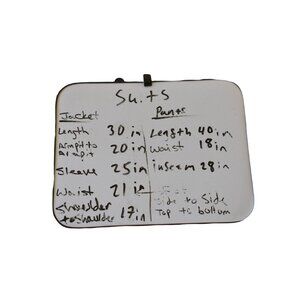 Suits
Jacket
Length 30 in
Armpit to
Armpit 20 in
Sleeve 25 in
Waist 21 in
Shoulder
to shoulder 17 in
Pants
Length 40 in
Waist 18 in
inseam 28 in
side to Side
Top to bottom